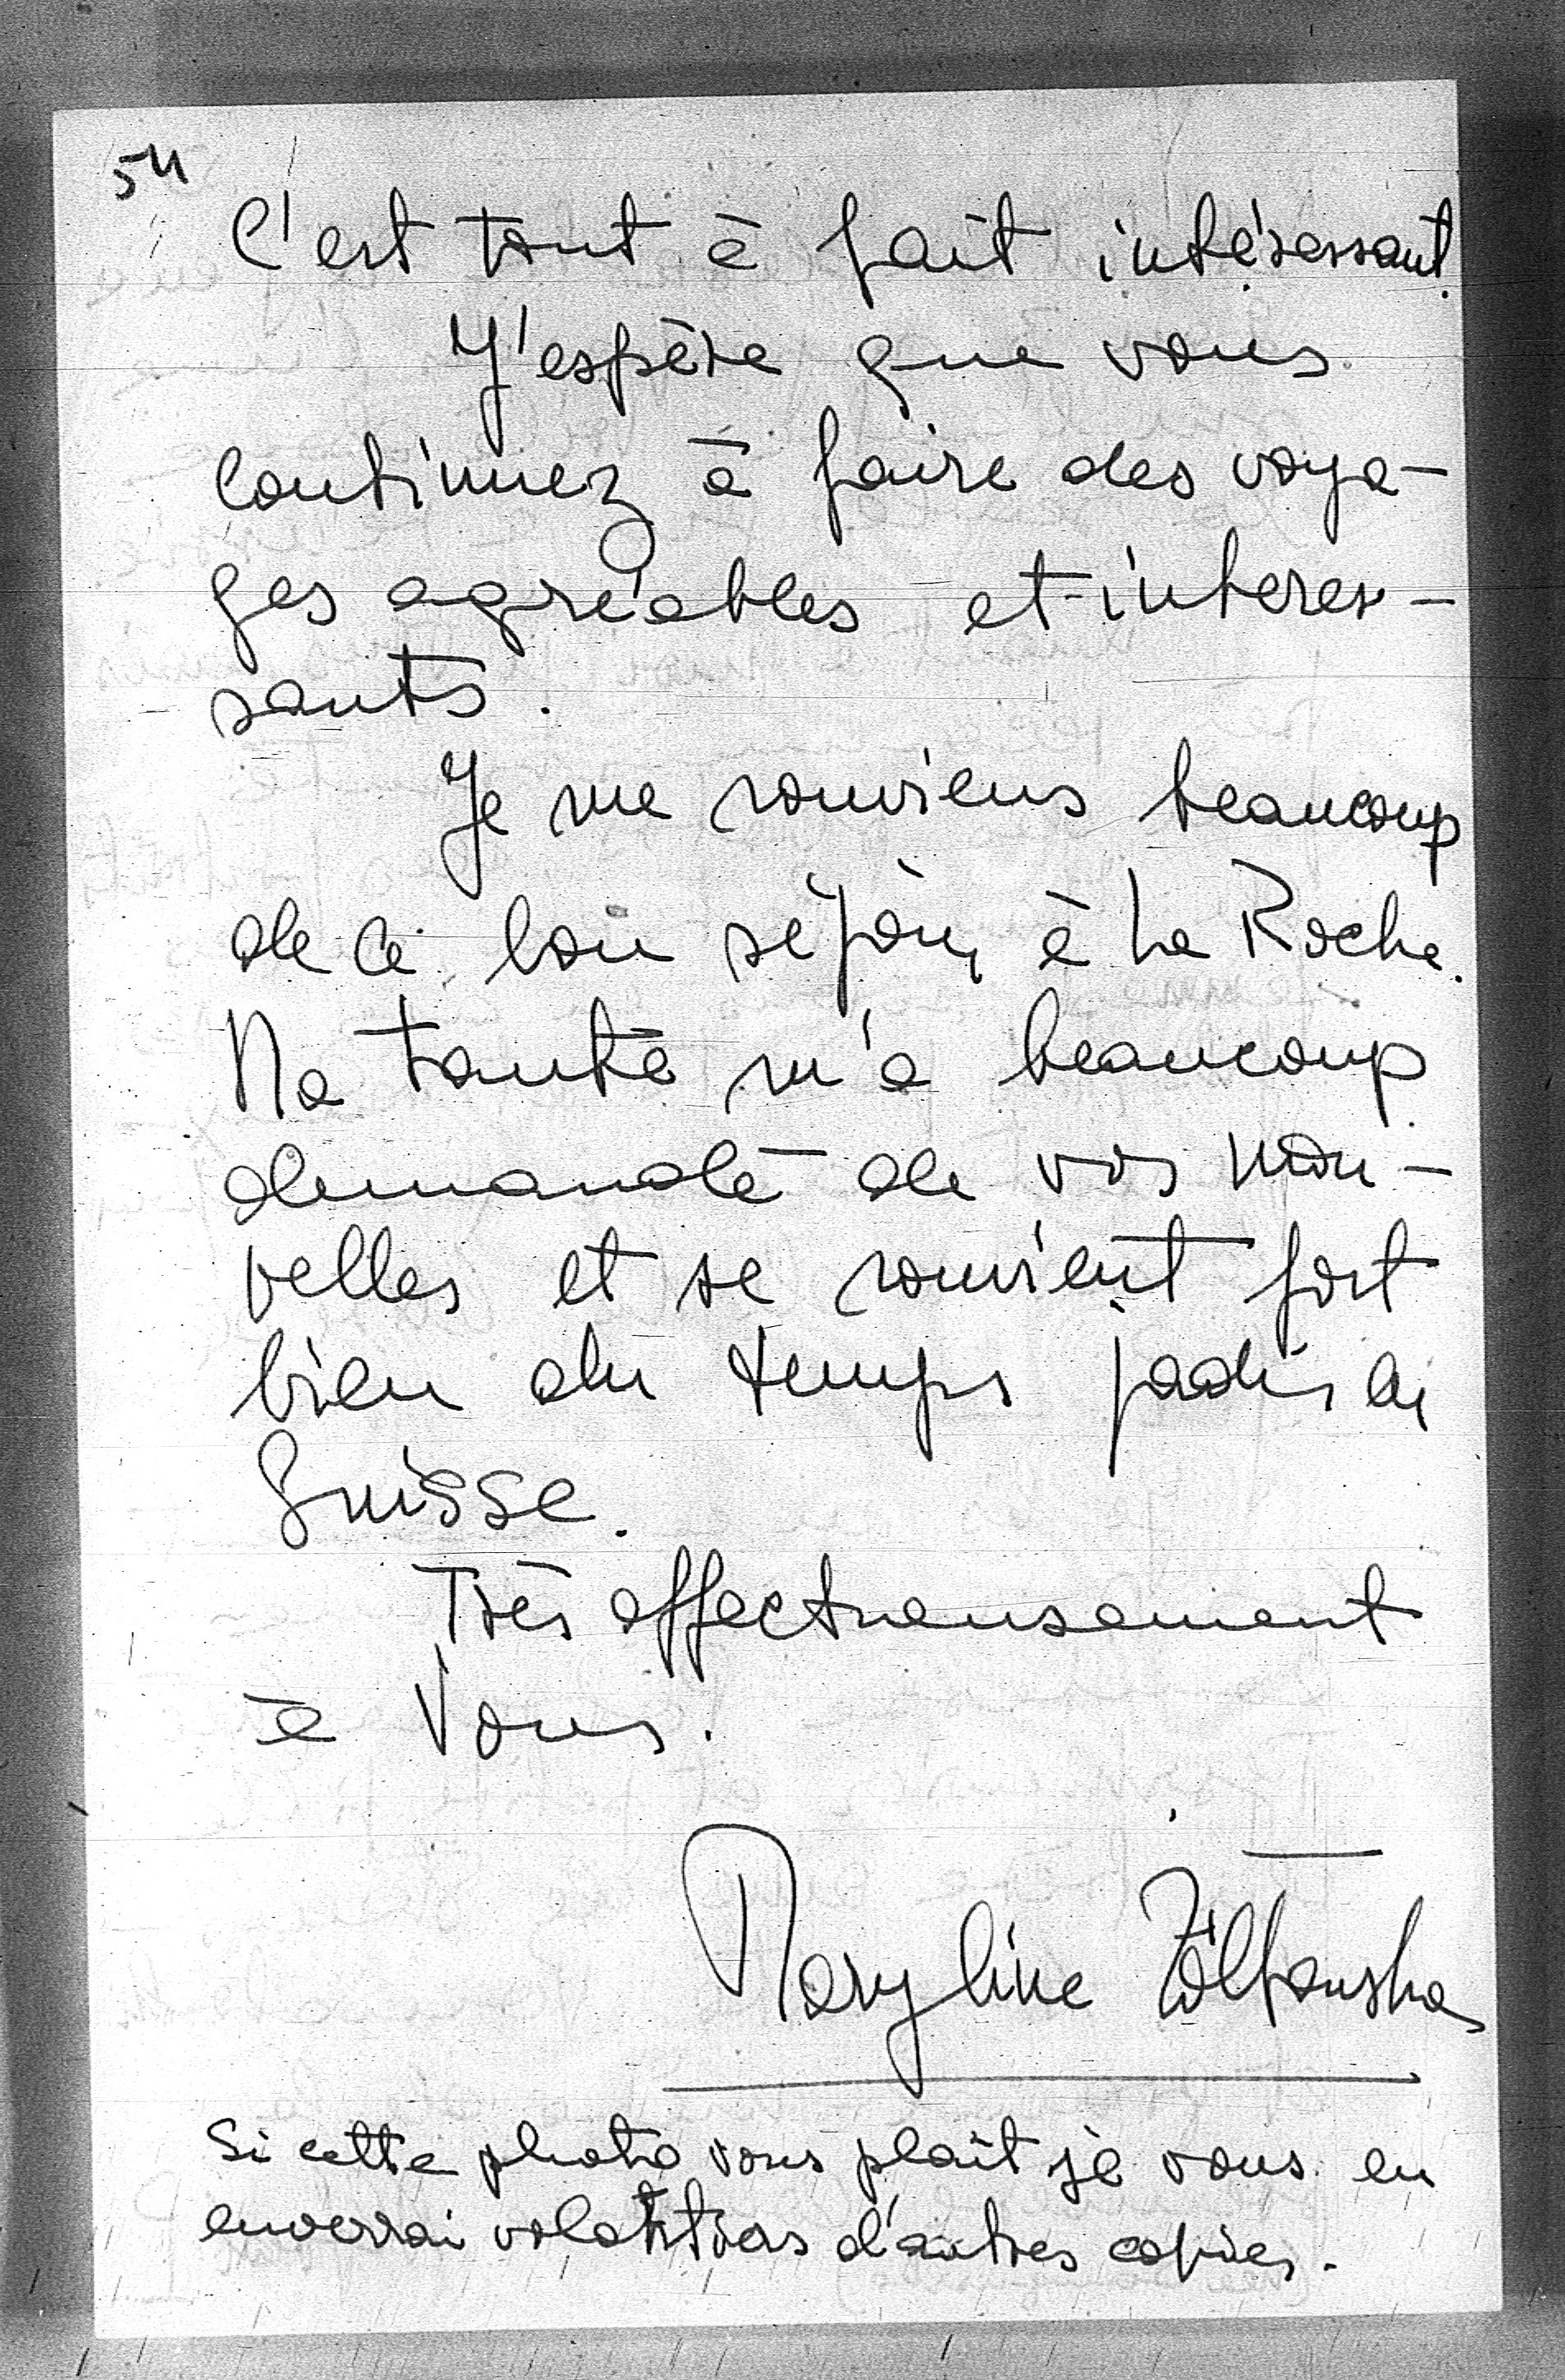 5"
C'est tout à fait intéressant.
J'espère que vous
continuez à faire des voya-
ges agréables et interes-
sants.
Je me souviens beaucoup
de ce bon séjour à La Roche.
Ma tante m'a beaucoup
demandé de vos nou-
velles et se souvient fort
bien du temps jadis
Suisse.
Très affectueusement
à Vous.
Maryline Żółtowska
Si cette photo vous plaît je vous en
enverrai volontiers d'autres copies.